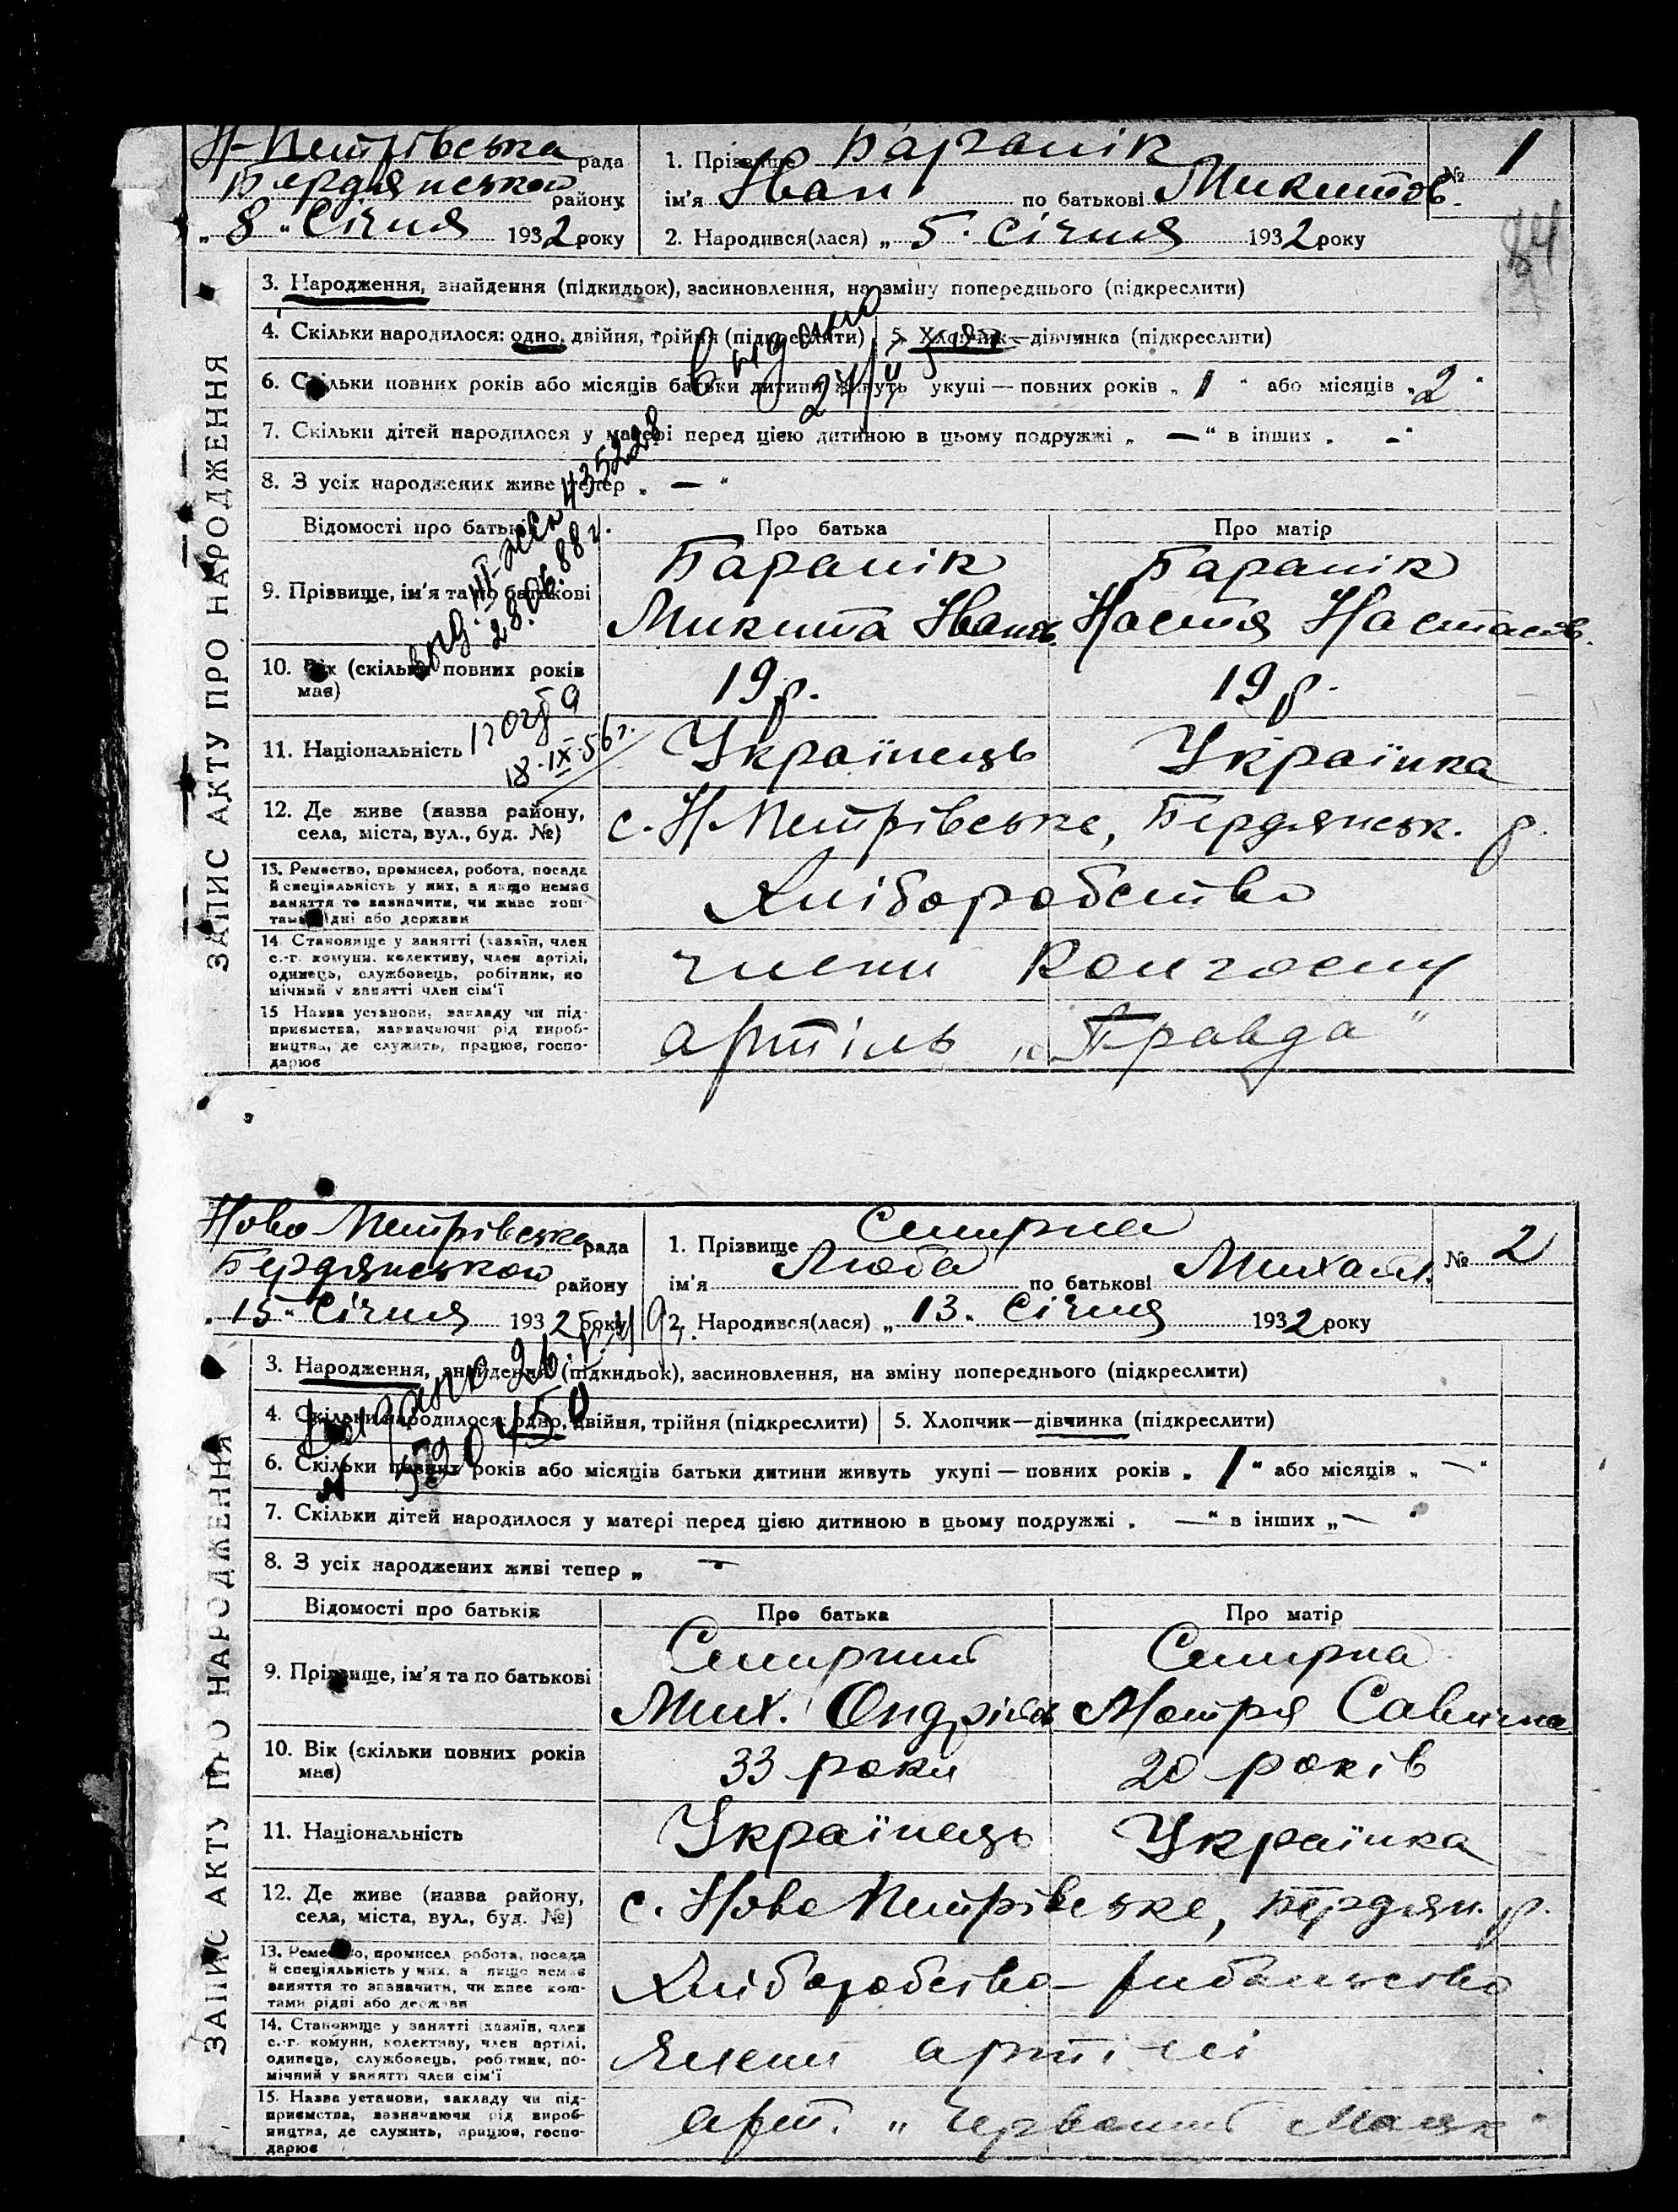 Н-Петрівська рада
Бердянської району
„8" Січня 1932 року
1. Прізвище Баранік
ім'я Іван по батькові Микитов.
№ 1
2. Народився(лася) „5" Січня 1932 року
84
ЗАПИС АКТУ ПРО НАРОДЖЕННЯ
3. Народження, знайдення (підкидьок), засиновлення, на зміну попереднього (підкреслити)
4. Скільки народилося: одно, двійня, трійня (підкреслити) 5. Хлопчик—дівчинка (підкреслити)
видано
6. Скільки повних років або місяців батьки дитини живуть укупі — повних років „1" або місяців „2"
7. Скільки дітей народилося у матері перед цією дитиною в цьому подружжі „—" в інших „—"
8. З усіх народжених живе тепер „—"
435228
28.06.88 г.
Відомості про батьків Про батька Про матір
9. Прізвище, ім'я та по батькові
Баранік Баранік
Микита Іванов Настя
10. Вік (скільки повних років має) 19 р. 19 р.
11. Національність Українець Українка
18.IX.56 г.
12. Де живе (назва району, села, міста, вул., буд. №) с. Н Петрівське, Бердянськ. р.
13. Ремество, промисел, робота, посада й спеціяльність у них, а якщо немає заняття то зазначити, чи живе коштами рідні або держави
Хліборобство
14. Становище у занятті (хазяїн, член с.-г. комуни, колективу, член артілі, одинець, службовець, робітник, помічний у занятті член сім'ї
члени Колгоспу
15. Назва установи, закладу чи підприємства, зазначаючи рід виробництва, де служить, працює, господарює
артіль „Правда"
Ново-Петрівська рада
Бердянської району
„15" Січня 1932 року
1. Прізвище Смирна
ім'я Люба по батькові Михайл.
№ 2
2. Народився(лася) „13" Січня 1932 року
ЗАПИС АКТУ ПРО НАРОДЖЕННЯ
3. Народження, знайдення (підкидьок), засиновлення, на зміну попереднього (підкреслити)
4. Скільки народилося: одно, двійня, трійня (підкреслити) 5. Хлопчик—дівчинка (підкреслити)
6. Скільки повних років або місяців батьки дитини живуть укупі — повних років „1" або місяців „—"
7. Скільки дітей народилося у матері перед цією дитиною в цьому подружжі „—" в інших „—"
8. З усіх народжених живі тепер „—
Відомості про батьків Про батька Про матір
9. Прізвище, ім'я та по батькові
Смирний Смирна
Мих. Ондрійов Мотря Савична
10. Вік (скільки повних років має) 33 роки 20 років
11. Національність Українець Українка
12. Де живе (назва району, села, міста, вул., буд. №) с. Ново Петрівське, Бердян. р.
13. Ремество, промисел, робота, посада й спеціяльність у них, а якщо немає заняття то зазначити, чи живе коштами рідні або держави
Хліборобство рибальство
14. Становище у занятті (хазяїн, член с.-г. комуни, колективу, член артілі, одинець, службовець, робітник, помічний у занятті член сім'ї
Члени артілі
15. Назва установи, закладу чи підприємства, зазначаючи рід виробництва, де служить, працює, господарює
арт. „Червоний Маяк"